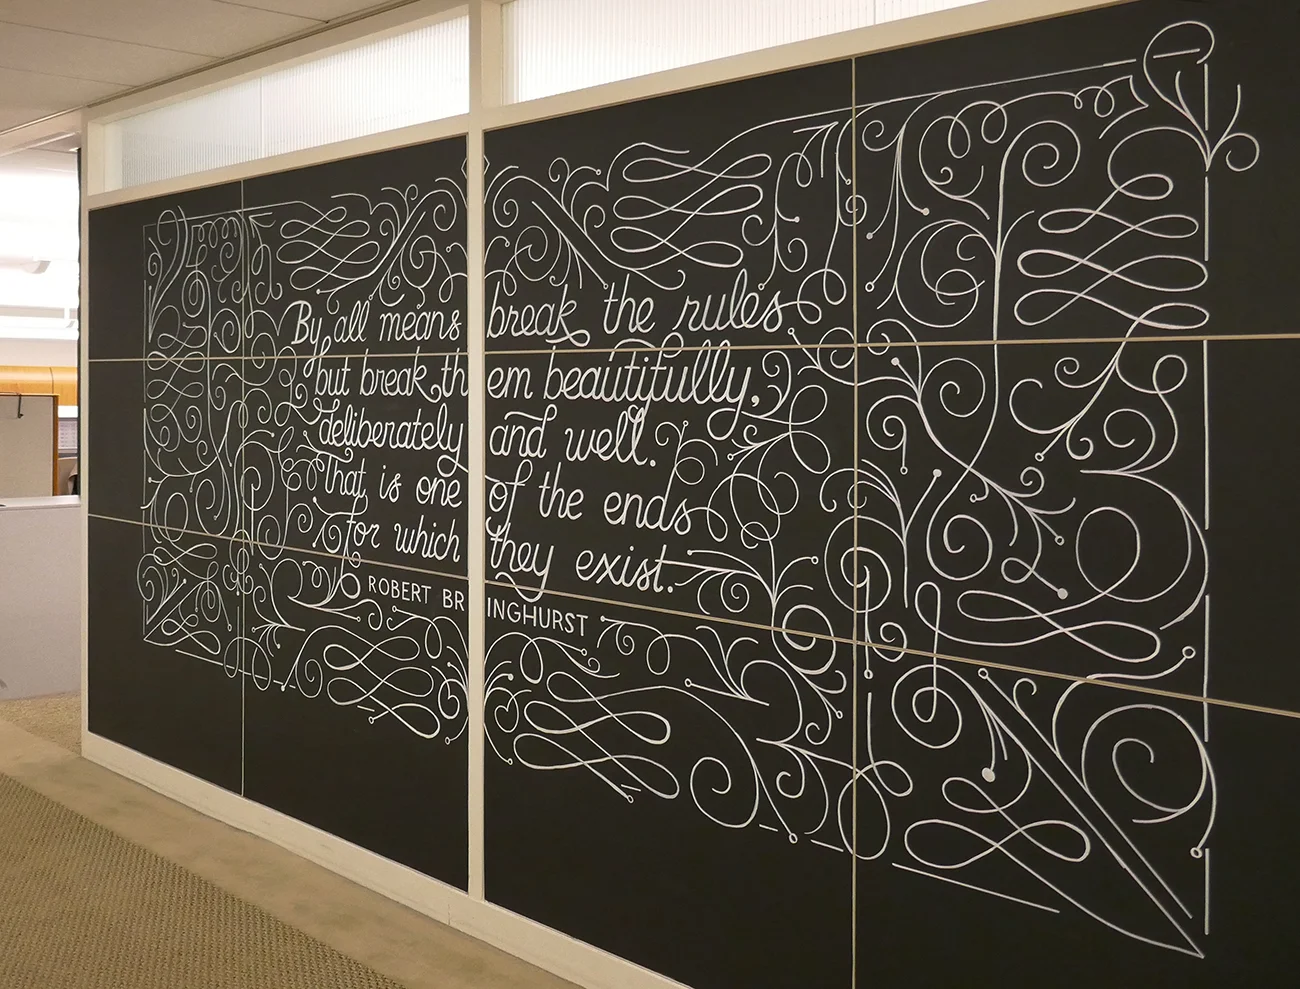 By all means break the rules
but break them beautifully,
deliberately and well.
That is one of the ends
for which they exist.
ROBERT BRINGHURST